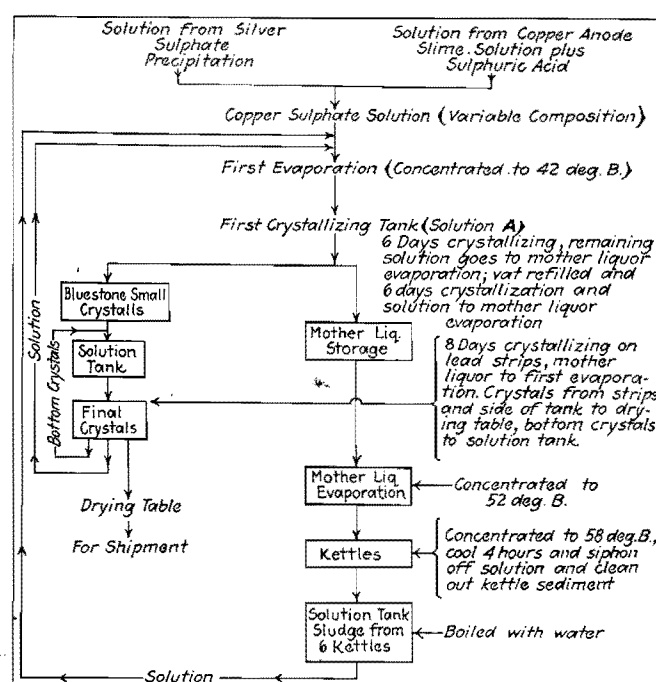 Solution from Silver
Sulphate
Precipitation
Solution from Copper Anode
Slime Solution plus
Sulphuric Acid
Copper Sulphate Solution (Variable Composition)
First Evaporation (Concentrated to 42 deg. B.)
First Crystallizing Tank (Solution A)
6 Days crystallizing, remaining
solution goes to mother liquor
evaporation; vat refilled and
6 days crystallization and
solution to mother liquor
evaporation
Bluestone Small
Crystalls
Solution
Tank
Final
Crystals
Solution
Bottom Crystals
Drying Table
For Shipment
Mother Liq.
Storage
8 Days crystallizing on
lead strips, mother
liquor to first evapora-
tion. Crystals from strips
and side of tank to dry-
ing table, bottom crystals
to solution tank.
Mother Liq.
Evaporation
Concentrated to
52 deg. B.
Kettles
Concentrated to 58 deg. B.,
cool 4 hours and siphon
off solution and clean
out kettle sediment
Solution Tank
Sludge from
6 Kettles
Boiled with water
Solution